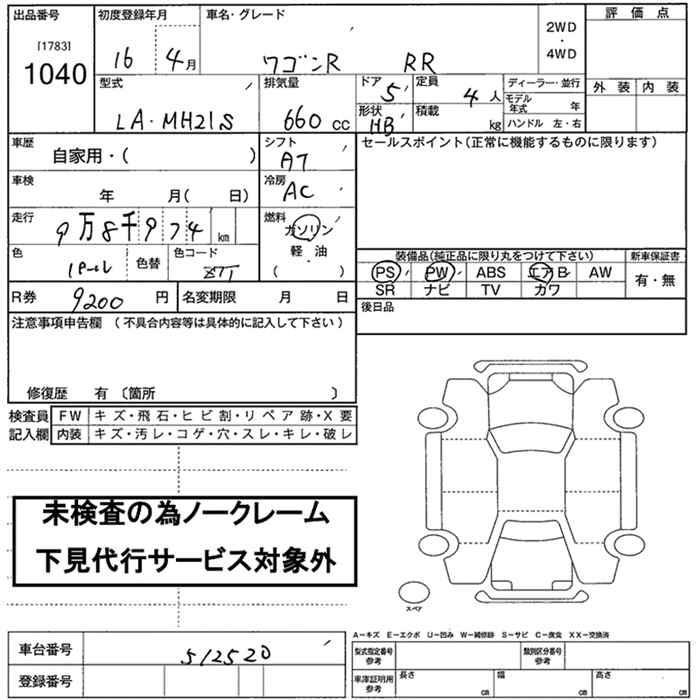 出品番号 初度登録年月 車名・グレード 評価点
[1783] 1040 16 4月 ワゴンR RR 2WD・4WD
型式 排気量 ドア 定員 ディーラー・並行 外装 内装
LA・MH21S 660cc 5 4人 モデル年式 年
形状 HB 積載 kg ハンドル 左・右
車歴 シフト セールスポイント(正常に機能するものに限ります)
自家用・( ) AT
車検 冷房
年 月( 日) AC
走行 燃料
9万8千974km ガソリン
軽・油
( )
色 色替 色コード
装備品(純正品に限り丸をつけて下さい) 新車保証書
PS PW ABS エアB AW 有・無
SR ナビ TV カワ
R券 9200円 名変期限 月 日 後日品
注意事項申告欄 (不具合内容等は具体的に記入して下さい)
修復歴 有 〔箇所 〕
検査員 FW キズ・飛石・ヒビ割・リペア跡・X要
記入欄 内装 キズ・汚レ・コゲ・穴・スレ・キレ・破レ
未検査の為ノークレーム
下見代行サービス対象外
スペア
A−キズ E−エクボ U−凹み W−補修跡 S−サビ C−腐食 XX−交換済
車台番号 512520 型式指定番号参考 類別区分番号参考
登録番号 車庫証明用参考 長さ cm 幅 cm 高さ cm